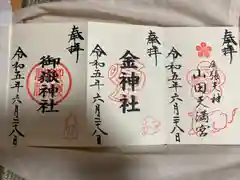 奉拝
尾張天神
山田天満宮
令和五年六月二八日
奉拝
金神社
令和五年六月二八日
奉拝
御嶽神社
令和五年六月二八日